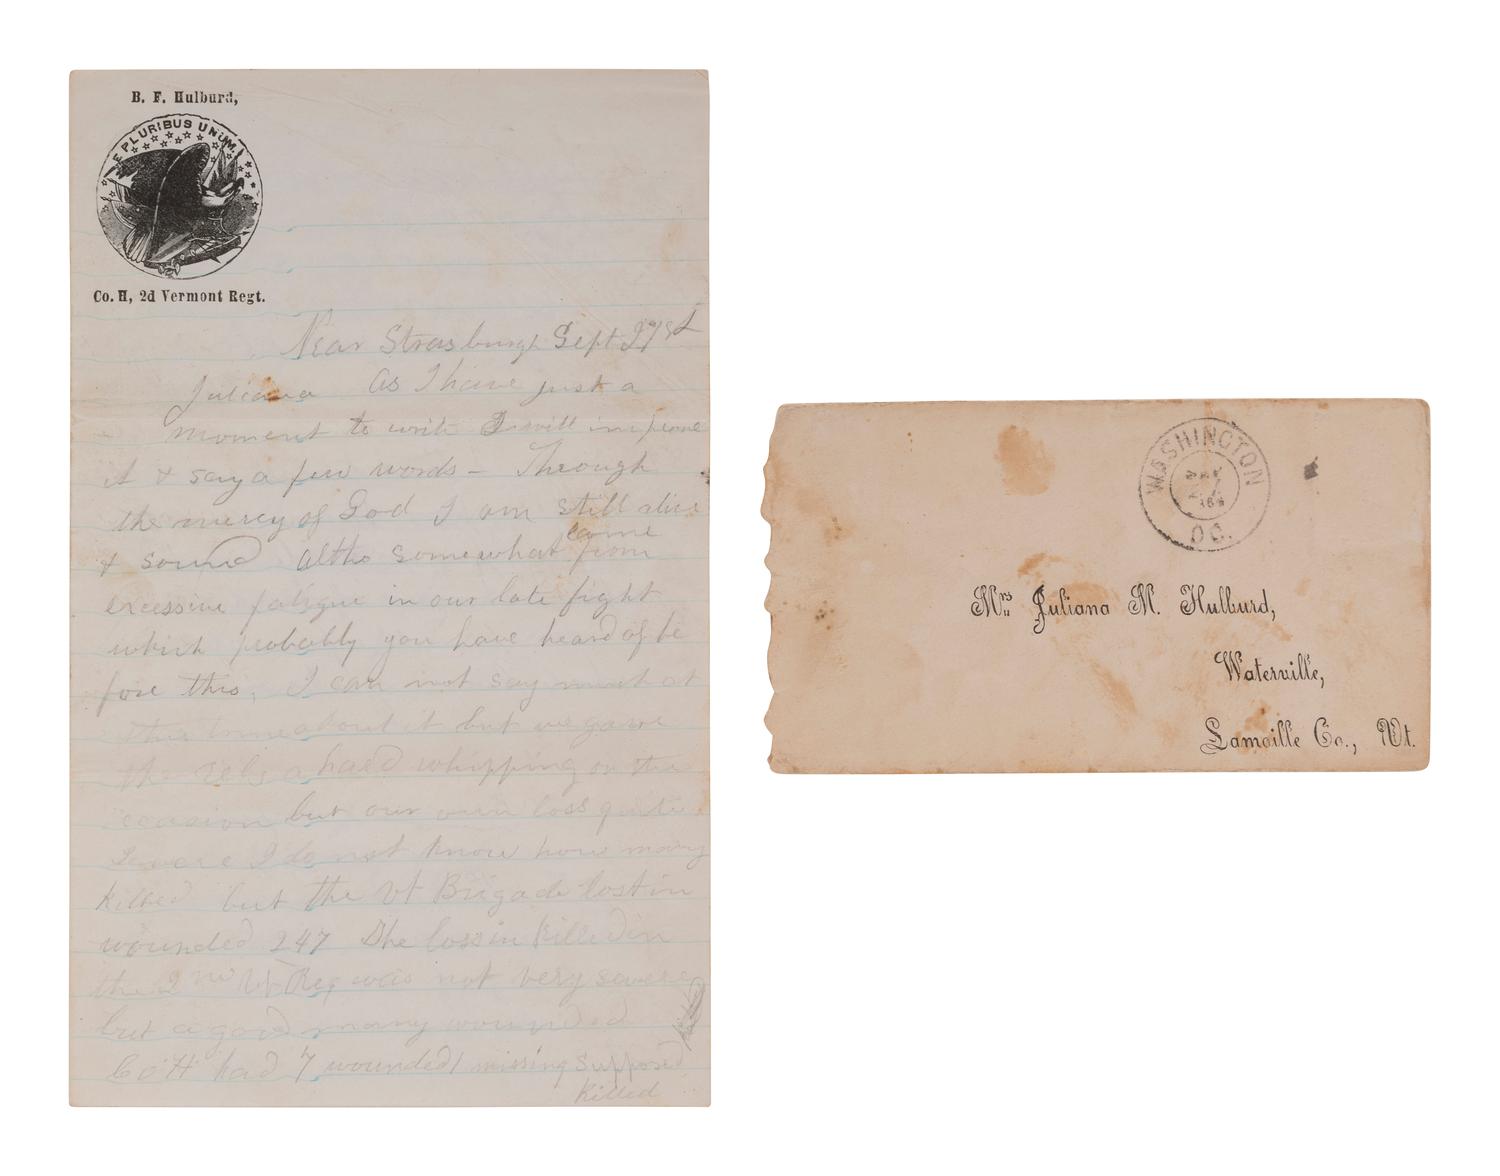 B. F. Hulburd,
E PLURIBUS UNUM.
Co. H, 2d Vermont Regt.
Near Strasburgh Sept
Juliana As I have just a
moment to write I will improve
it & say a few words – Through
the mercy of God I am still alive
& sound altho somewhat lame from
excessive fatigue in our late fight
which probably you have heard of be
fore this, I can not say much at
this time about it but we gave
the rebs a hard whipping on the
occasion but our own loss quite
severe I do not know how many
killed but the Vt Brigade lost in
wounded 247 The loss in killed in
the 2nd Vt Reg was not very severe
but a good many wounded
Co H had 7 wounded 1 missing supposed
killed
WASHINGTON
D.C.
Mrs Juliana M. Hulburd,
Waterville,
Lamoille Co., Vt.